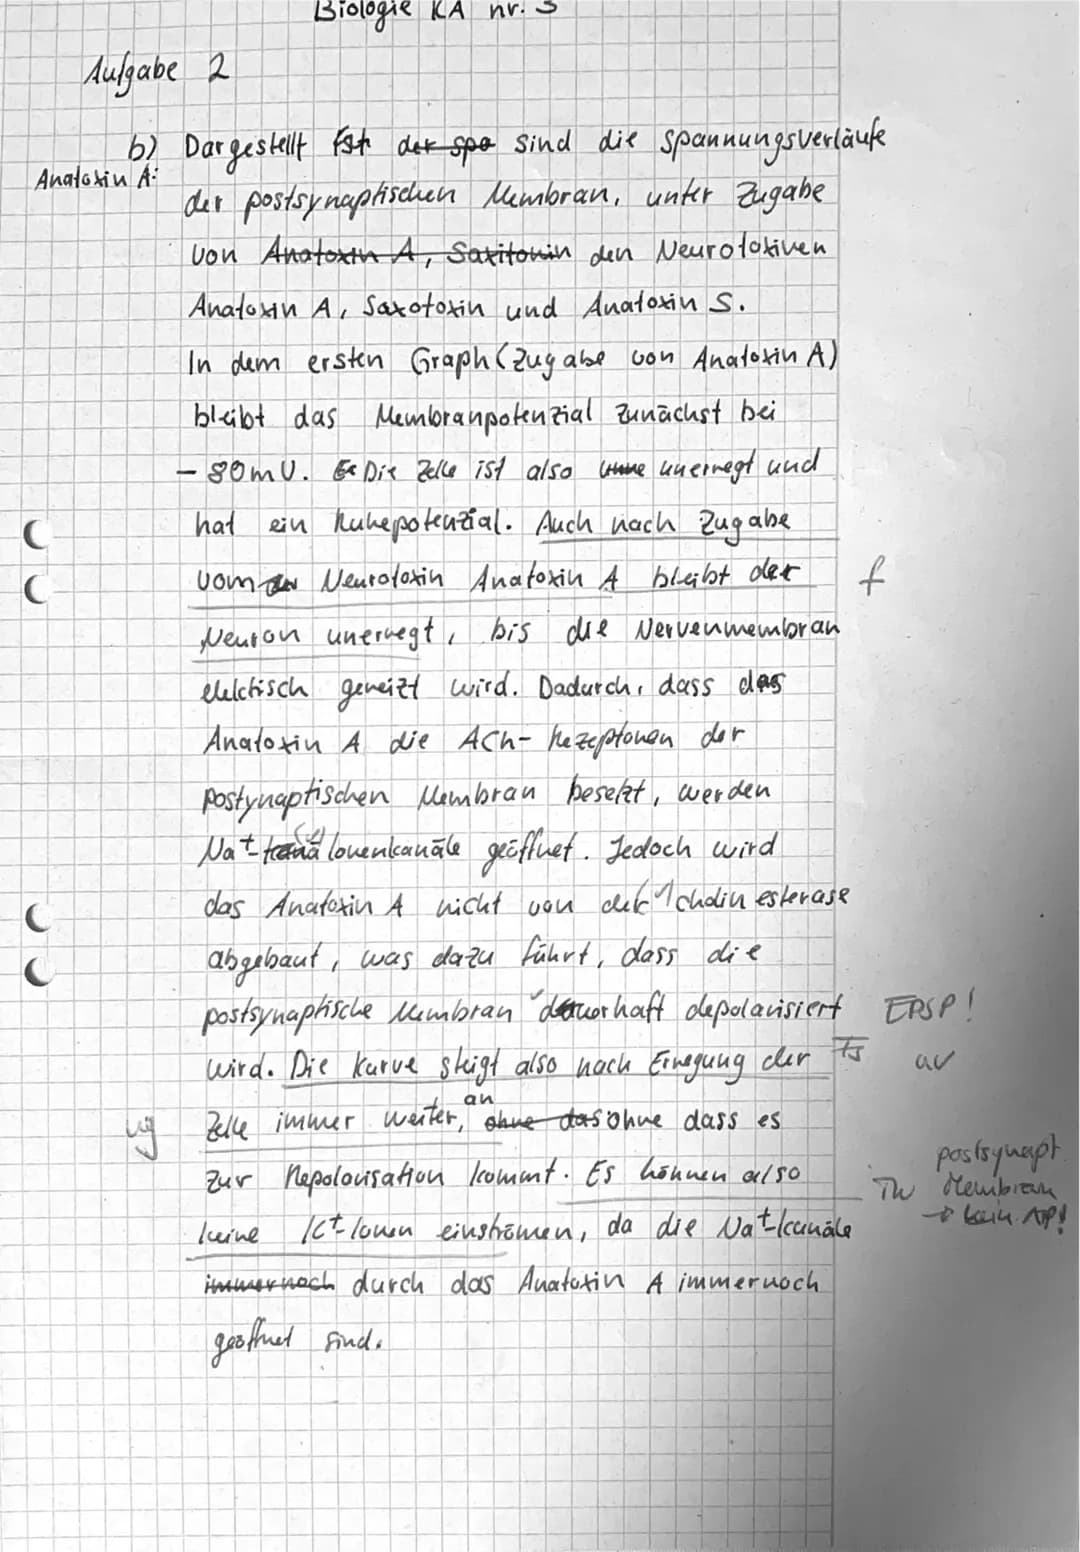 Biologie KA nr. 3
Aufgabe 2
b) Dargestellt ist der spa sind die Spannungsverläufe
Anatoxin A:
der postsynaptischen Membran, unter Zugabe
von Anatoxin A, Saxitonin den Neurotoxinen
Anatoxin A, Saxotoxin und Anatoxin S.
In dem ersten Graph (Zugabe von Anatoxin A)
bleibt das Membranpotenzial zunächst bei
- 80mV. Die Zelle ist also unerregt und
hat ein Ruhepotenzial. Auch nach Zugabe
vom Neurotoxin Anatoxin A bleibt der f
Neuron unerregt, bis die Nervenmembran
elektisch gereizt wird. Dadurch, dass das
Anatoxin A die ACh-Rezeptoren der
postynaptischen Membran besetzt, werden
Na+-Ionenkanäle geöffnet. Jedoch wird
das Anatoxin A nicht von der cholinesterase
abgebaut, was dazu führt, dass die
postsynaptische Membran dauerhaft depolarisiert EPSP!
wird. Die Kurve steigt also nach Erregung der Fs
Zelle immer weiter, an ohne das ohne dass es
zur Repolarisation kommt. Es können also
postsynapt.
Membran
→ kein AP!
keine K+-Ionen einströmen, da die Na+-kanäle
immernoch durch das Anatoxin A immernoch
geöffnet sind.